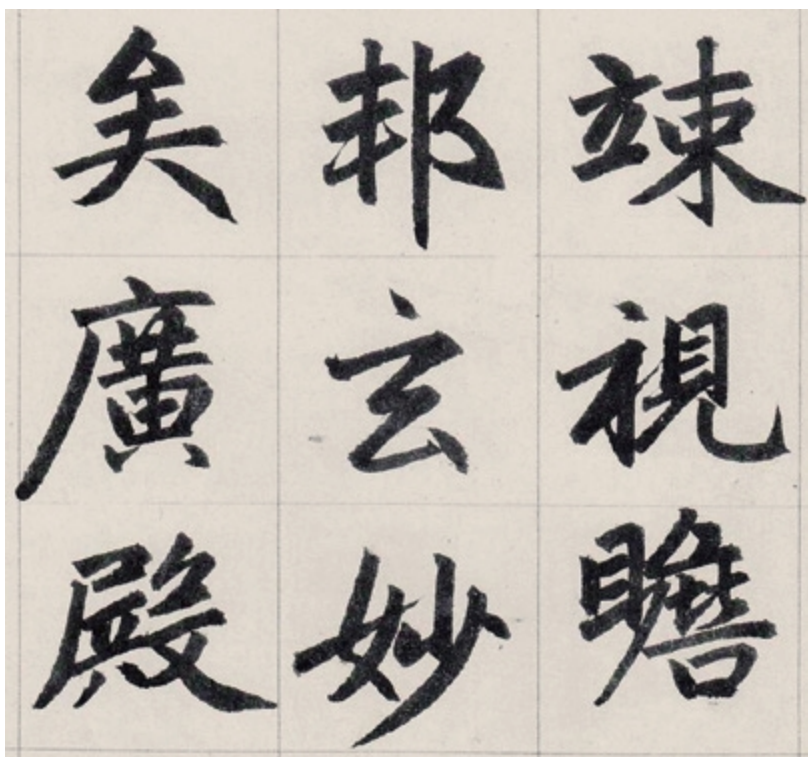 竦視瞻
邦玄妙
矣廣殿